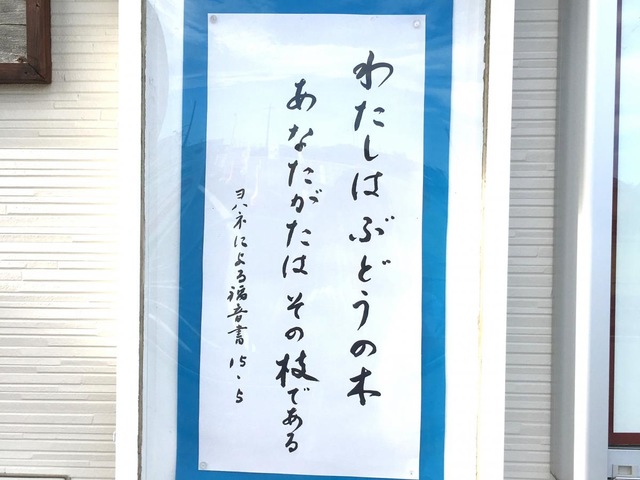 わたしはぶどうの木
あなたがたはその枝である
ヨハネによる福音書 15・5